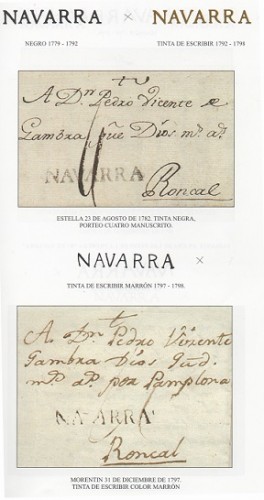 NAVARRA × NAVARRA
NEGRO 1779 - 1792 TINTA DE ESCRIBIR 1792 - 1798
A Dⁿ Pedro Vicente
Gambra que Dios mˢ aˢ
NAVARRA
Roncal
ESTELLA 23 DE AGOSTO DE 1782. TINTA NEGRA,
PORTEO CUATRO MANUSCRITO.
NAVARRA ×
TINTA DE ESCRIBIR MARRÓN 1797 - 1798.
A Dⁿ Pedro Vizente
Gambra Dios Gud.
mˢ aˢ por Pamplona
NAVARRA
Roncal
MORENTIN 31 DE DICIEMBRE DE 1797.
TINTA DE ESCRIBIR COLOR MARRÓN